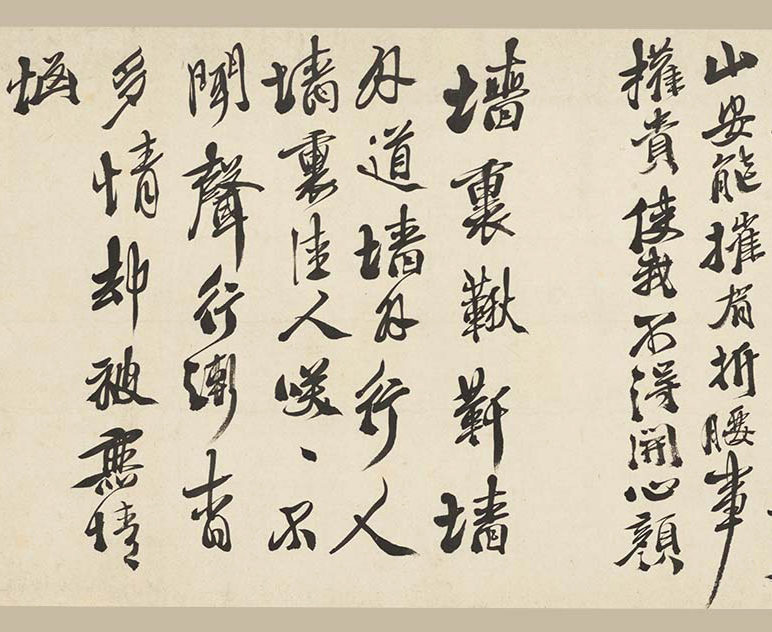 山安能摧眉折腰事
權貴使我不得開心顏
墻裏鞦韆墻
外道墻外行人
墻裏佳人咲、不
聞聲行漸杳
多情却被無情
惱